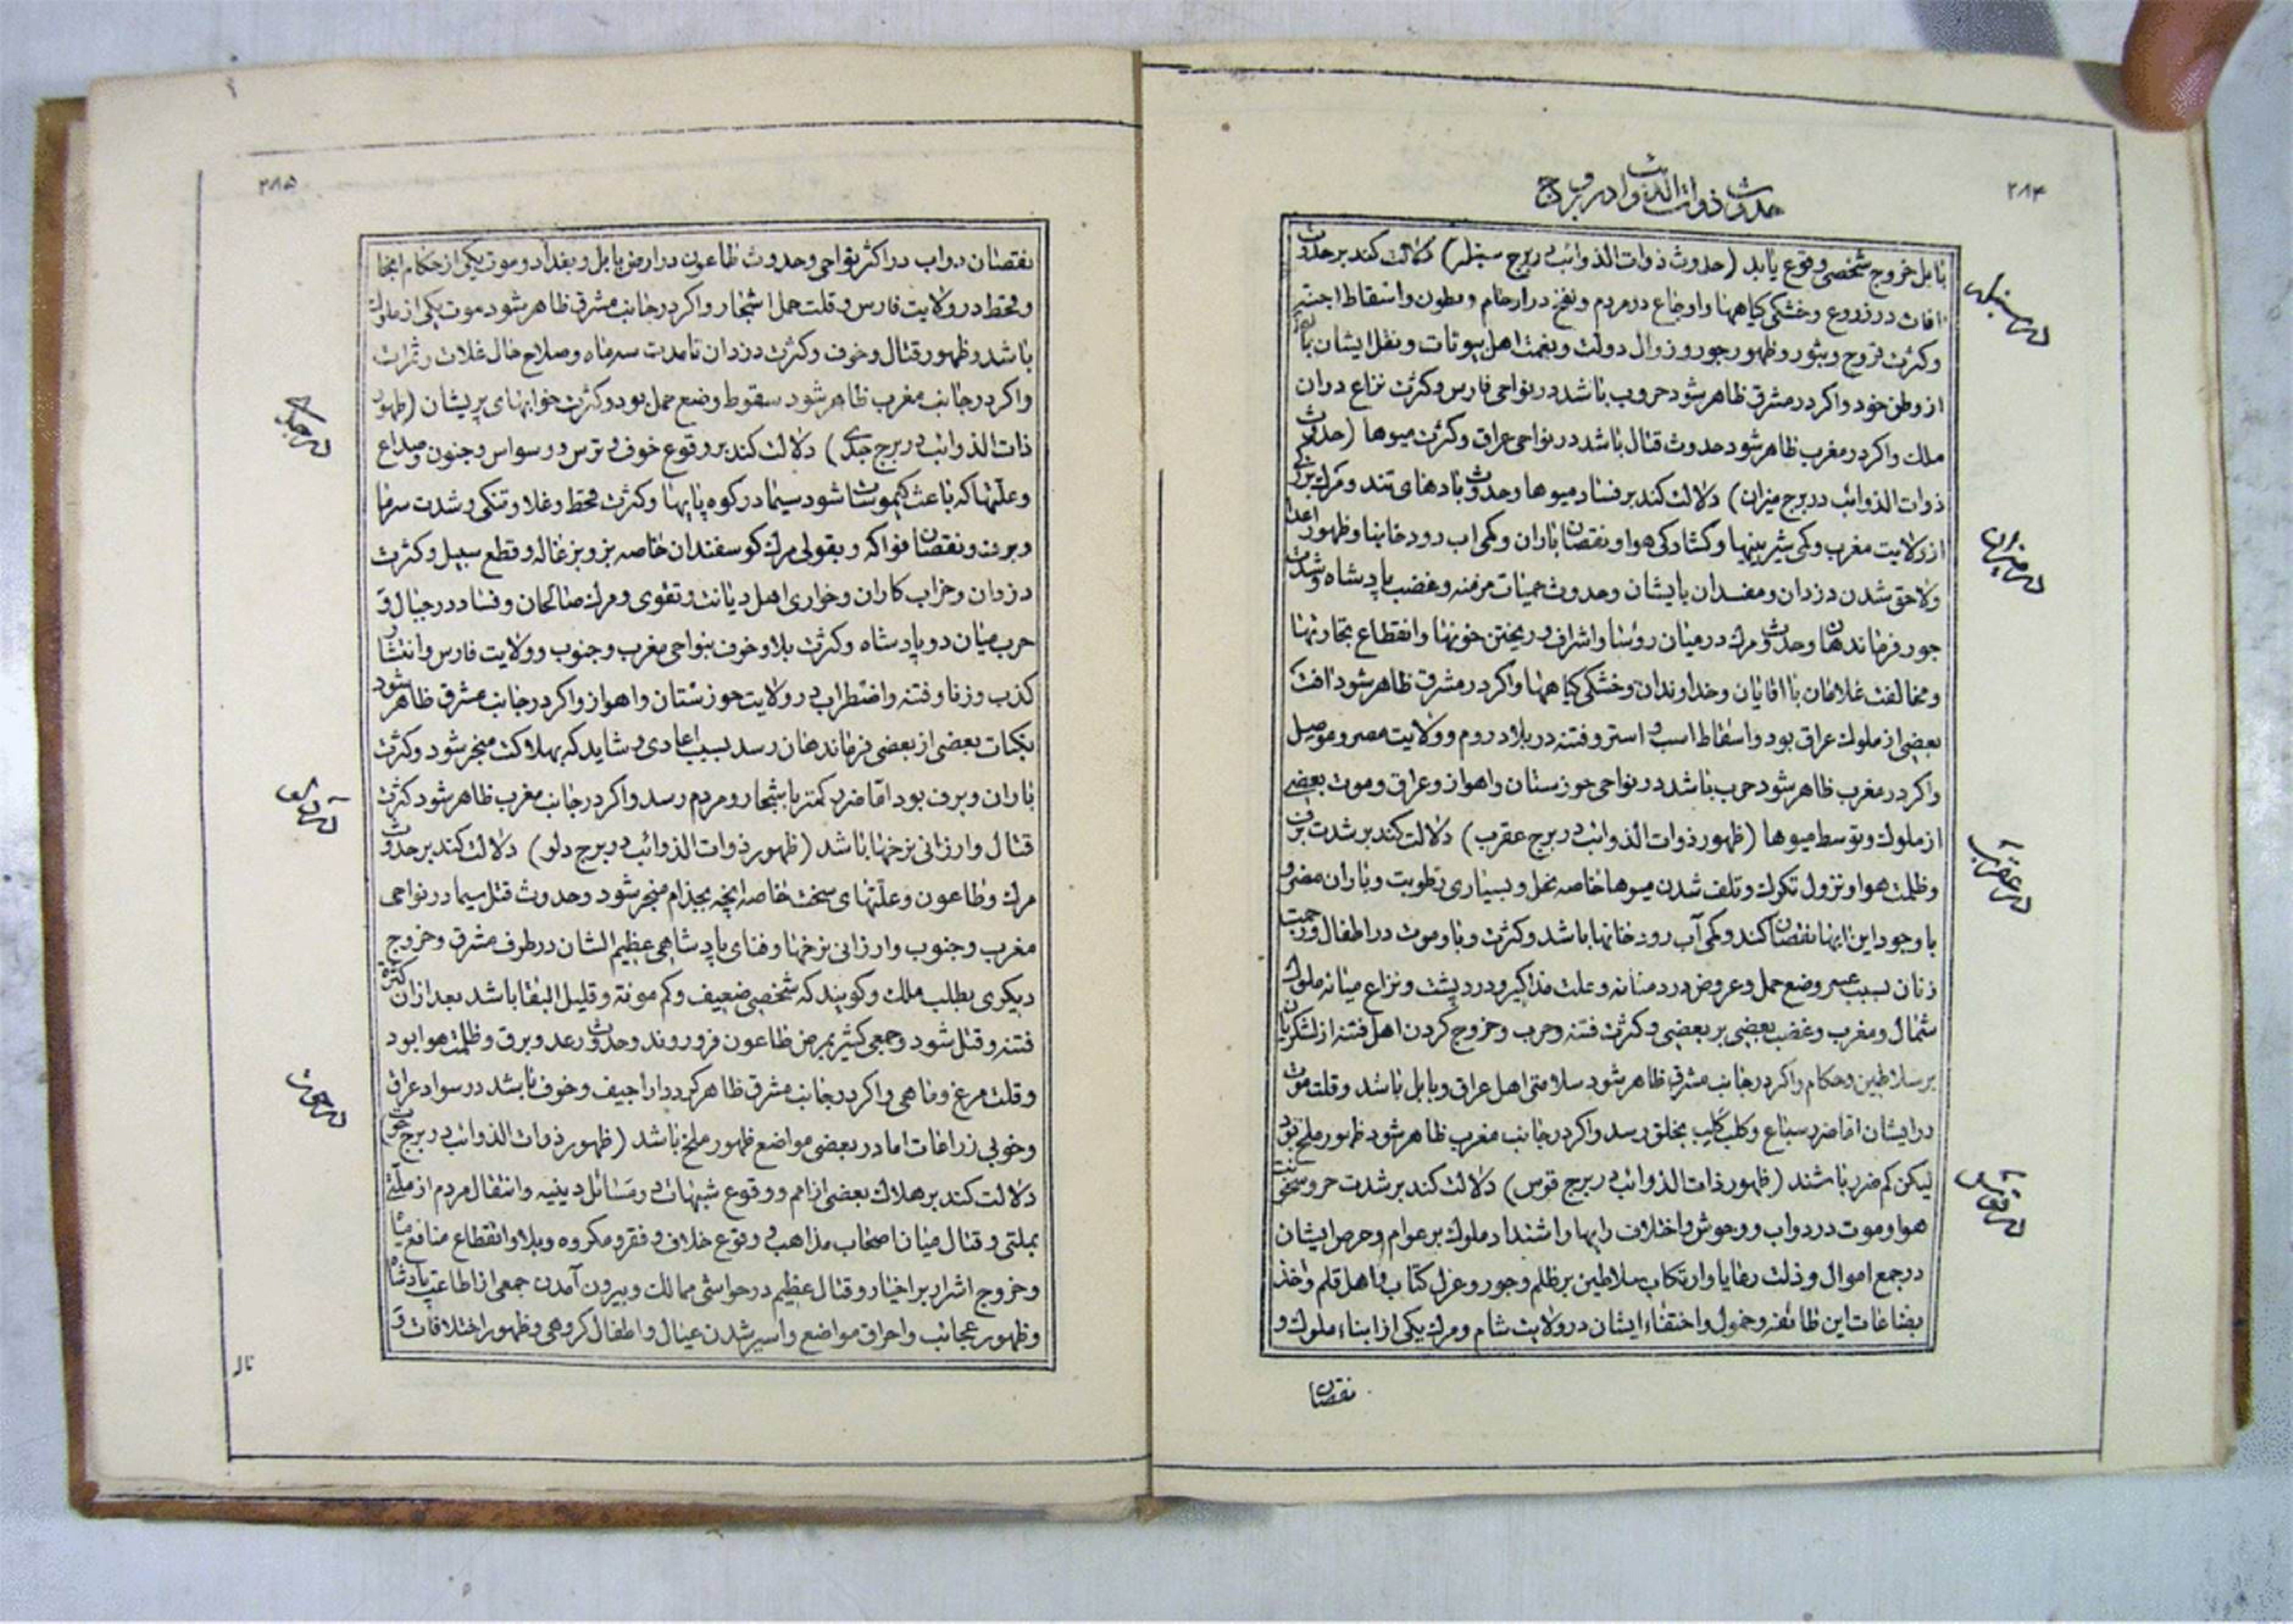 ۲۸۴
حدوث ذوات الذوائب در بروج
بابل خروج شخصی وقوع یابد (حدوث ذوات الذوائب در برج سنبله) دلالت کند بر حدوث
افات در زروع و خشکی کیاهها و اوجاع در مردم و نفخ در ارحام و بطون و اسقاط اجنه
و کثرت قروح و بثور و ظهور جور و زوال دولت و نعمت اهل بیوتات و نقل ایشان باشد
از وطن خود و اکر در مشرق ظاهر شود حروب باشد در نواحی فارس و کثرت نزاع در ان
ملک و اکر در مغرب ظاهر شود حدوث قتال باشد در نواحی عراق و کثرت میوها (حدوث
ذوات الذوائب در برج میزان) دلالت کند بر فساد میوها و حدوث بادهای تند و مرک بزرکی
از ولایت مغرب و کمی شیرینیها و کشادکی هوا و نقصان باران و کمی اب رودخانها و ظهور اعدا
و لاحق شدن دزدان و مفسدان بایشان و حدوث حمیات مزمنه و غضب پادشاه و شدت
جور فرماندهان و حدوث مرک در میان روسا و اشراف و ریختن خونها و انقطاع تجارتها
و مخالفت غلامان با اقایان و خداوندان و خشکی کیاهها و اکر در مشرق ظاهر شود افت
بعضی از ملوک عراق بود و اسقاط اسب و استر و فتنه در بلاد روم و ولایت مصر و موصل
و اکر در مغرب ظاهر شود حرب باشد در نواحی حوزستان و اهواز و عراق و موت بعضی
از ملوک و توسط میوها (ظهور ذوات الذوائب در برج عقرب) دلالت کند بر شدت برف
و ظلمت هوا و نزول تکرک و تلف شدن میوها خاصه نخل و بسیاری رطوبت و باران مضر و
با وجود این ابها نقصان کند و کمی آب رودخانها باشد و کثرت وبا و موت در اطفال و زحمت
زنان بسبب عسر وضع حمل و عروض درد مثانه و علت مذاکیر و درد پشت و نزاع میانه ملوک
شمال و مغرب و غضب بعضی بر بعضی و کثرت فتنه و حرب و خروج کردن اهل فتنه از لشکریان
بر سلاطین و حکام و اکر در جانب مشرق ظاهر شود سلامتی اهل عراق و بابل باشد و قلت موت
در ایشان اما ضرر سباع و کلب کلب بخلق رسد و اکر در جانب مغرب ظاهر شود ظهور ملخ بود
لیکن کم ضرر باشند (ظهور ذات الذوائب در برج قوس) دلالت کند بر شدت حر و سخونت
هوا و موت در دواب و وحوش و اختلاف رایها و اشتداد ملوک بر عوام و حرص ایشان
در جمع اموال و ذلت رعایا و ارتکاب سلاطین بر ظلم و جور و عزل کتاب و اهل قلم و اخذ
بضاعات این طائفه و خمول و اختفاء ایشان در ولایت شام و مرک یکی از ابناء ملوک و
نقصان
در سنبله
در میزان
در عقرب
در قوس
۲۸۵
نقصان دواب در اکثر نواحی و حدوث طاعون در ارض بابل و بغداد و موت یکی از حکام انجا
و قحط در ولایت فارس و قلت حمل اشجار و اکر در جانب مشرق ظاهر شود موت یکی از ملوک
باشد و ظهور قتال و خوف و کثرت دزدان تا مدت سه ماه و صلاح حال غلات و ثمرات
و اکر در جانب مغرب ظاهر شود سقوط وضع حمل بود و کثرت خوابهای پریشان (ظهور
ذات الذوائب در برج جدی) دلالت کند بر وقوع خوف و ترس و وسواس و جنون و صداع
و علتها که باعث کیموسات شود سیما در کوه پایها و کثرت قحط و غلا و تنکی و شدت سرما
و برف و نقصان فواکه و بقولی مرک کوسفندان خاصه بز و بزغاله و قطع سبیل و کثرت
دزدان و خراب کاران و خواری اهل دیانت و تقوی و مرک صالحان و فساد در جبال و
حرب میان دو پادشاه و کثرت بلا و خوف بنواحی مغرب و جنوب و ولایت فارس و انتشار
کذب و زنا و فتنه و اضطراب در ولایت حوزستان و اهواز و اکر در جانب مشرق ظاهر شود
نکبات بعضی از بعضی فرماندهان رسد بسبب اعادی و شاید که بهلاکت منجر شود و کثرت
باران و برف بود اما ضرر کمتر باشجار و مردم رسد و اکر در جانب مغرب ظاهر شود کثرت
قتال و ارزانی نرخها باشد (ظهور ذوات الذوائب در برج دلو) دلالت کند بر حدوث
مرک و طاعون و علتهای سخت خاصه انچه بجذام منجر شود و حدوث قتل سیما در نواحی
مغرب و جنوب و ارزانی نرخها و فنای پادشاهی عظیم الشان در طرف مشرق و خروج
دیکری بطلب ملک و کویند که شخصی ضعیف و کم مونة و قلیل البقا باشد بعد از ان کثرة
فتنه و قتل شود و جمعی کثیر بمرض طاعون فرو روند و حدوث رعد و برق و ظلمت هوا بود
و قلت مرغ و ماهی و اکر در جانب مشرق ظاهر کردد اراجیف و خوف باشد در سواد عراق
و خوبی زراعات اما در بعضی مواضع ظهور ملخ باشد (ظهور ذوات الذوائب در برج حوت)
دلالت کند بر هلاک بعضی از امم و وقوع شبهات در مسائل دینیه و انتقال مردم از ملتی
بملتی و قتال میان اصحاب مذاهب و وقوع خلاف و فقر و مکروه و بلا و انقطاع منافع
و خروج اشرار بر اخیار و قتال عظیم در حواشی ممالک و بیرون آمدن جمعی از اطاعت پادشاه
و ظهور عجائب و احراق مواضع و اسیر شدن عیال و اطفال کروهی و ظهور اختلافات و
در جدی
در دلو
در حوت